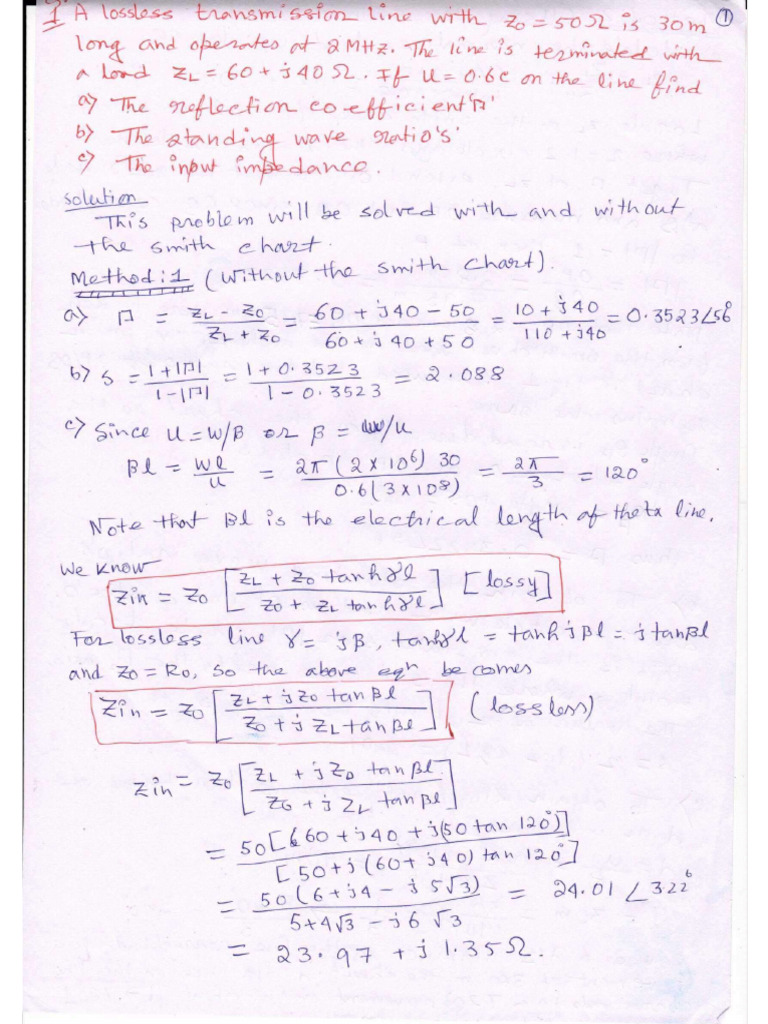 1 A lossless transmission line with Z0 = 50Ω is 30m ①
long and operates at 2 MHz. The line is terminated with
a load ZL = 60 + j40 Ω. If U = 0.6c on the line find
a) The reflection coefficient 'Γ'
b) The standing wave ratio 's'
c) The input impedance.
solution
This problem will be solved with and without
the smith chart.
Method:1 (without the smith chart).
a) Γ = (ZL - Z0)/(ZL + Z0) = (60 + j40 - 50)/(60 + j40 + 50) = (10 + j40)/(110 + j40) = 0.3523∠56°
b) s = (1+|Γ|)/(1-|Γ|) = (1 + 0.3523)/(1 - 0.3523) = 2.088
c) Since U = W/β or β = W/u
βl = Wl/u = 2π(2 × 10⁶) 30/0.6(3×10⁸) = 2π/3 = 120°
Note that βl is the electrical length of the line.
We know
Zin = Z0 [(ZL + Z0 tanhγl)/(Z0 + ZL tanhγl)] [lossy]
For lossless line γ = jβ, tanhγl = tanhjβl = j tanβl
and Z0 = R0, so the above eqn becomes
Zin = Z0 [(ZL + jZ0 tanβl)/(Z0 + jZL tanβl)] (lossless)
Zin = Z0 [(ZL + jZ0 tanβl)/(Z0 + jZL tanβl)]
= 50[60 + j40 + j(50 tan 120°)]/[50 + j(60 + j40) tan 120°]
= 50(6 + j4 - j5√3)/(5 + 4√3 - j6√3) = 24.01 ∠3.22°
= 23.97 + j1.35Ω.